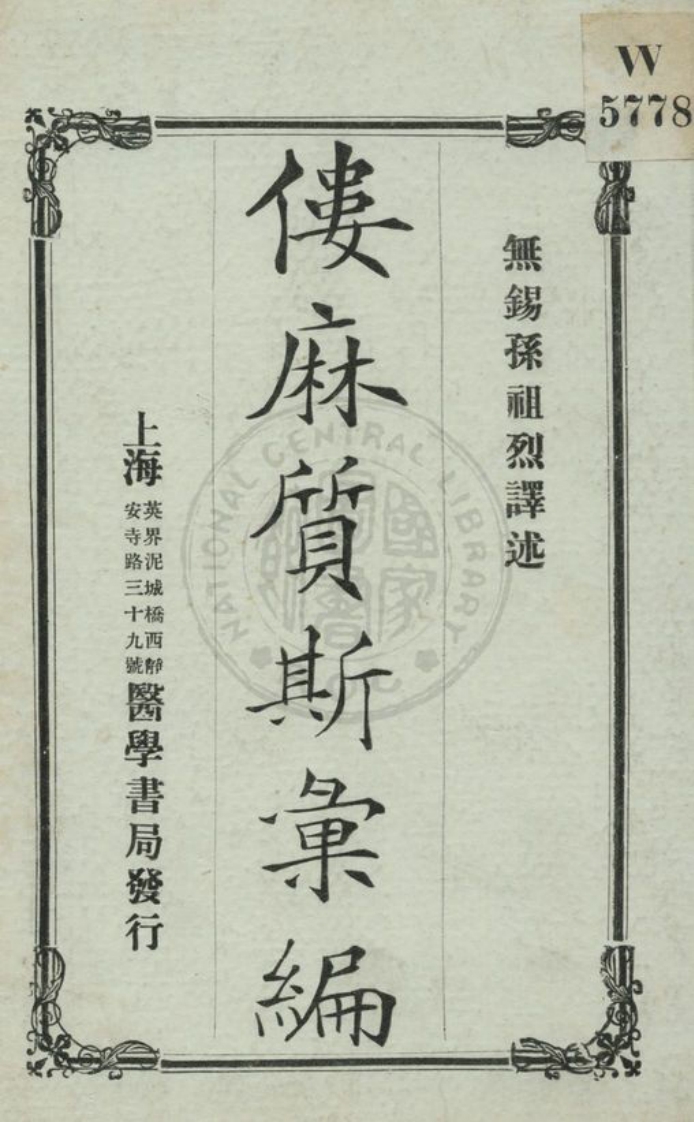 W
5778
無錫孫祖烈譯述
僂麻質斯彙編
上海
英界泥城橋西靜
安寺路三十九號
醫學書局發行
NATIONAL CENTRAL LIBRARY
國家